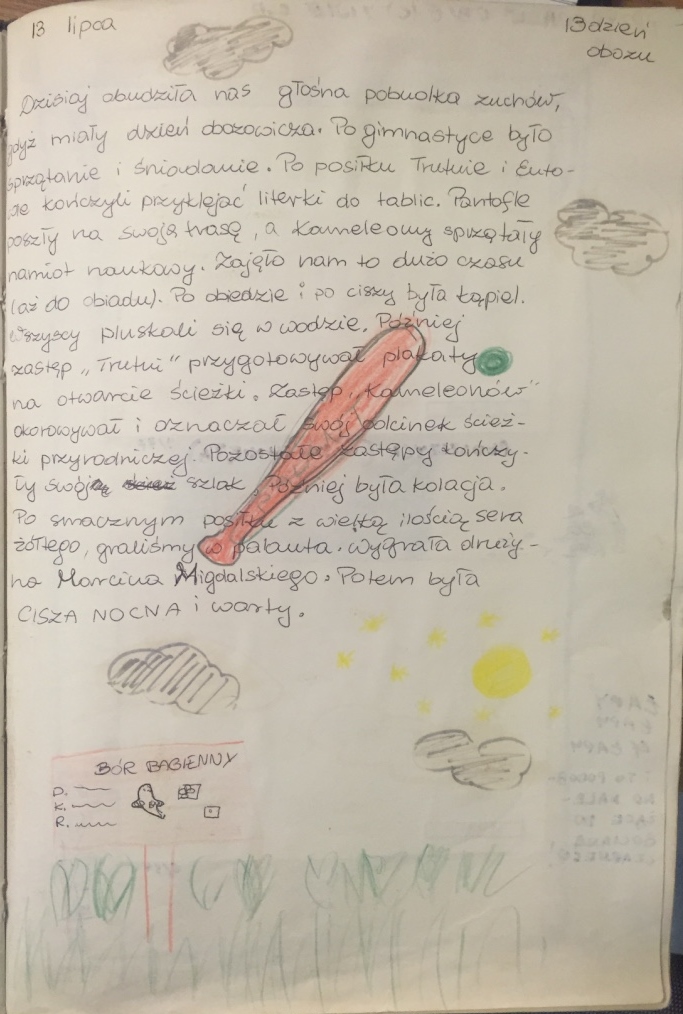 13 lipca
13 dzień
obozu
Dzisiaj obudziła nas głośna pobudka zuchów,
gdyż miały dzień obozowicza. Po gimnastyce było
sprzątanie i śniadanie. Po posiłku Trutuie i Euto-
kończyli przyklejać literki do tablic. Pantofle
poszły na swoją trasę, a Kameleony sprzątały
namiot naukowy. Zajęło nam to dużo czasu
(aż do obiadu). Po obiedzie i po ciszy była kąpiel.
Wszyscy pluskali się w wodzie. Później
zastęp „Trutui" przygotowywał plakaty
na otwarcie ścieżki. Zastęp „Kameleonów"
okorowywał i oznaczał swój odcinek ścież-
ki przyrodniczej. Pozostałe zastępy kończy-
ły swój szlak. Później była kolacja.
Po smacznym posiłku z wielką ilością sera
żółtego, graliśmy w palanta. Wygrała druży-
na Marcina Migdalskiego. Potem była
CISZA NOCNA i warty.
BÓR BAGIENNY
D.
K.
R.